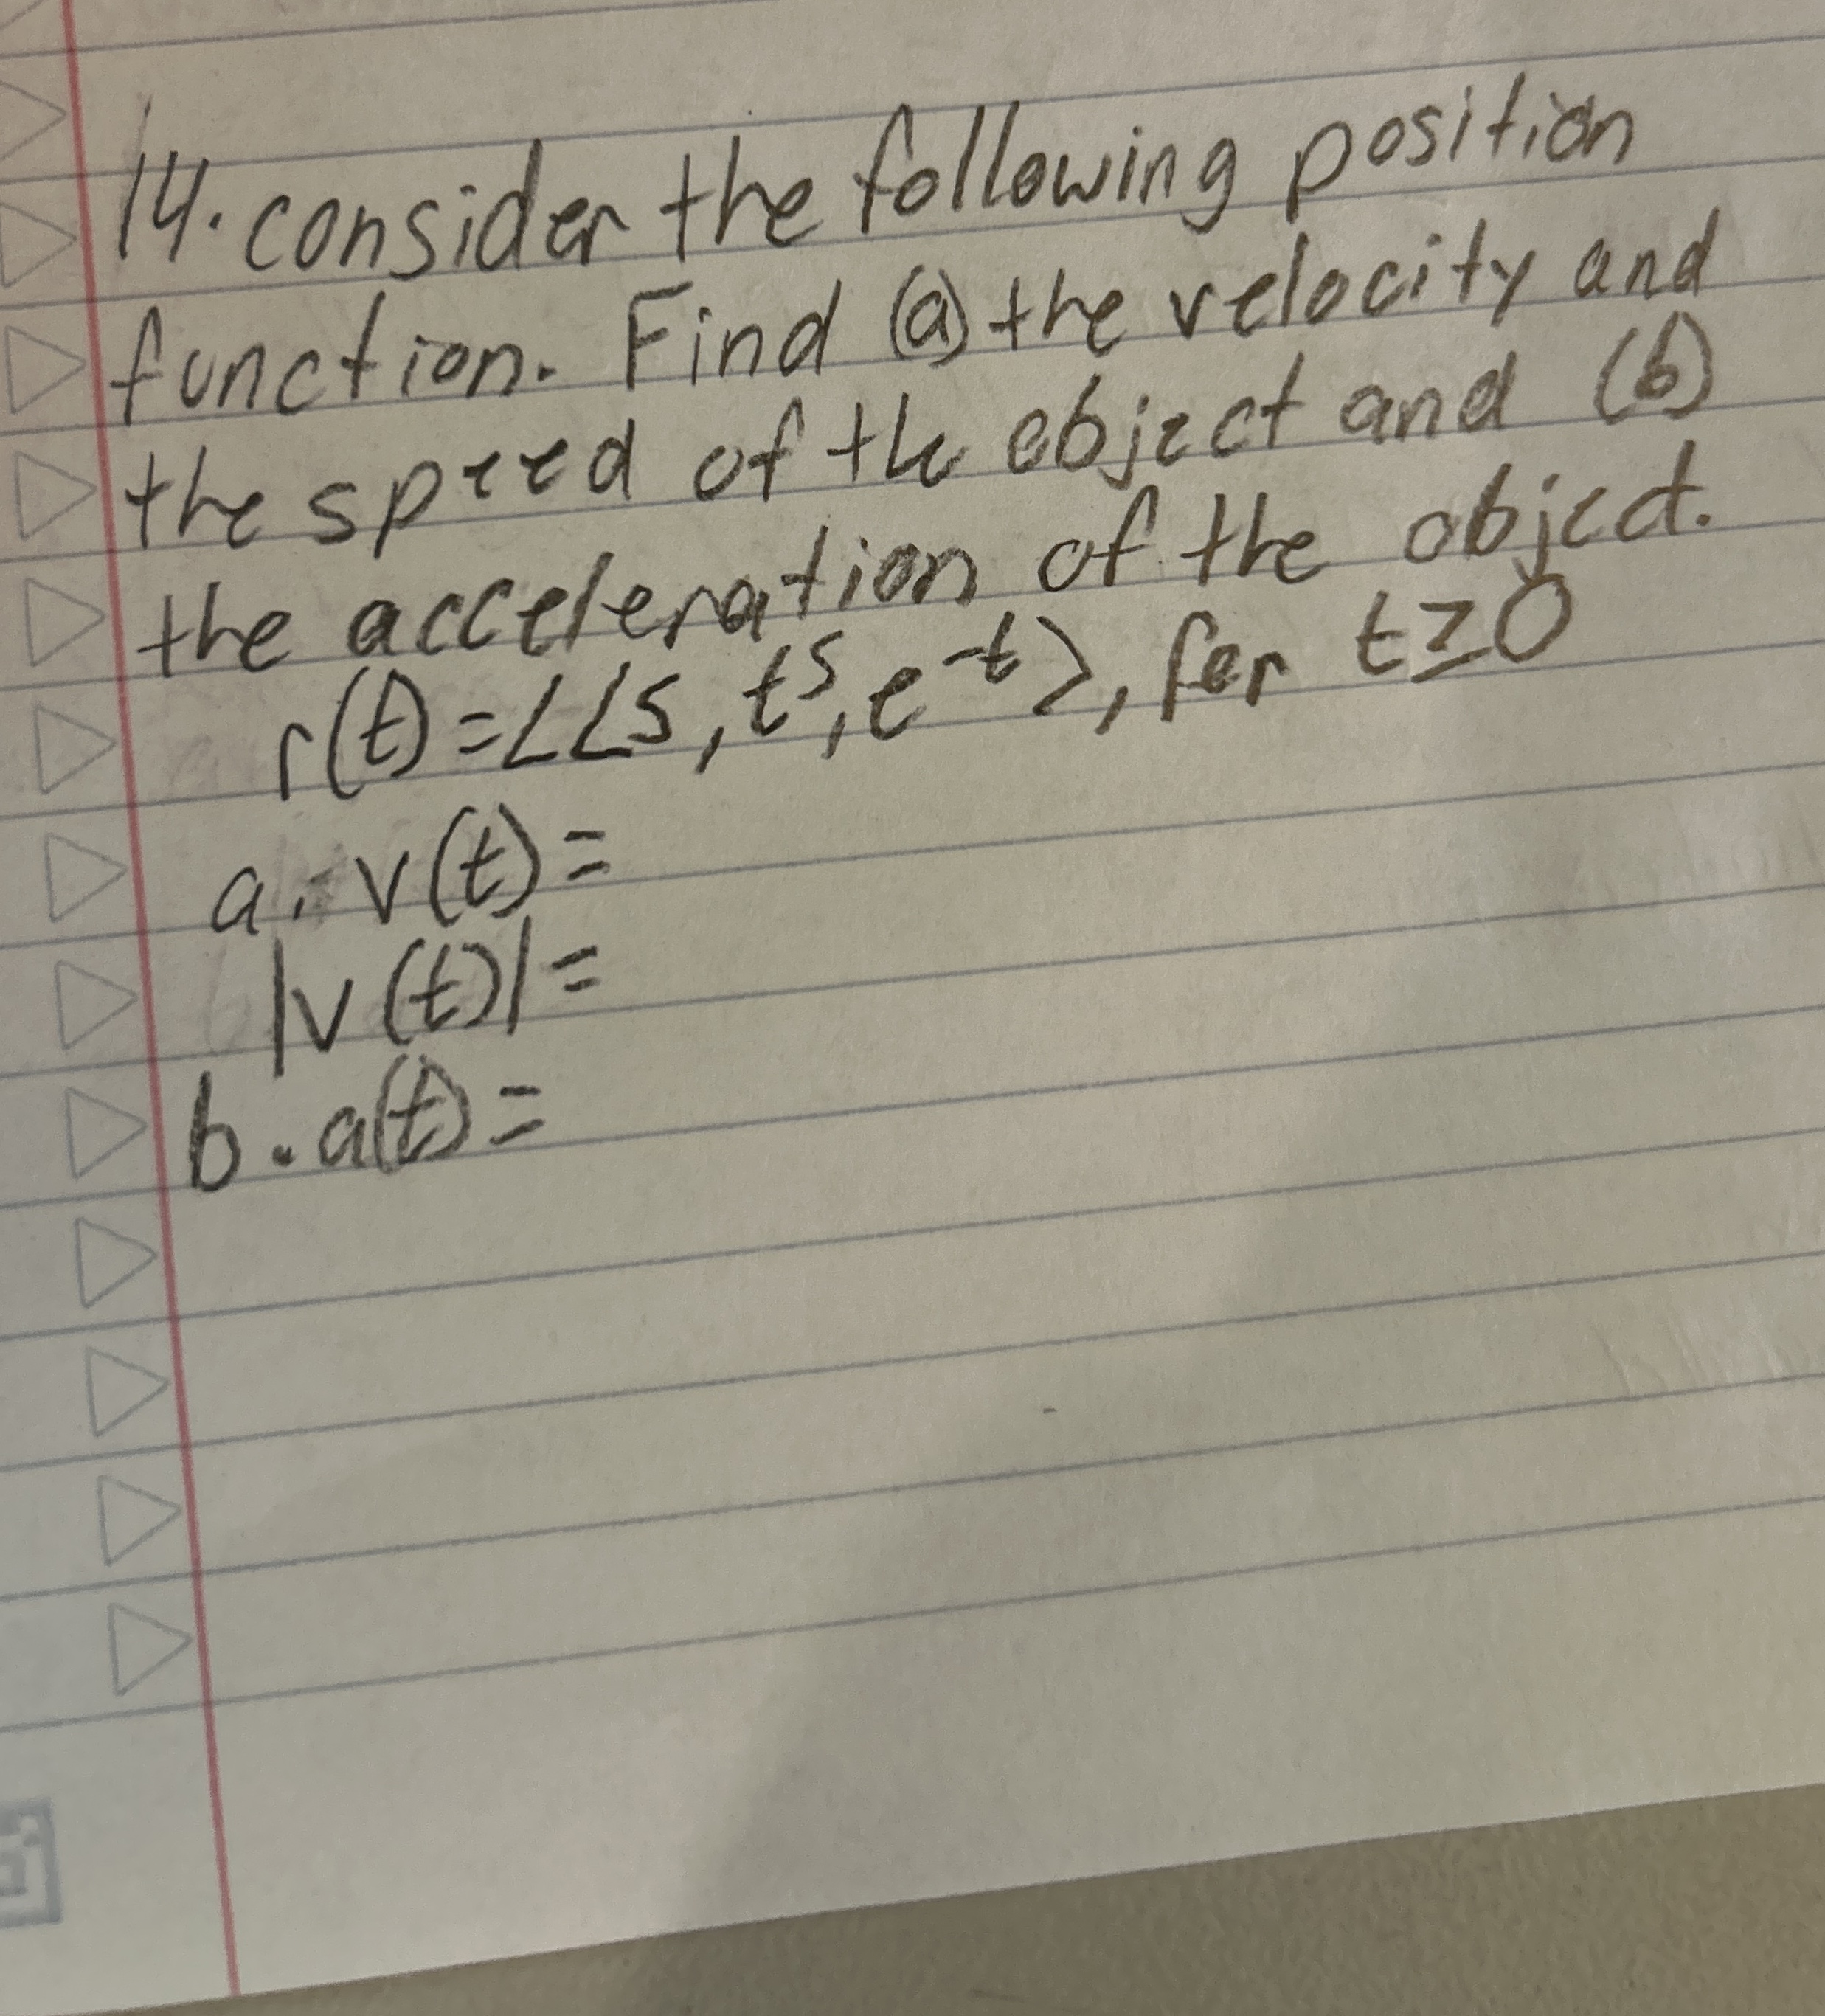 14. consider the following position
function. Find (a) the velocity and
the speed of the object and (b)
the acceleration of the object.
r(t)=<<5, t^5, e^-t>, for t≥0
a. v(t)=
|v(t)|=
b. a(t)=